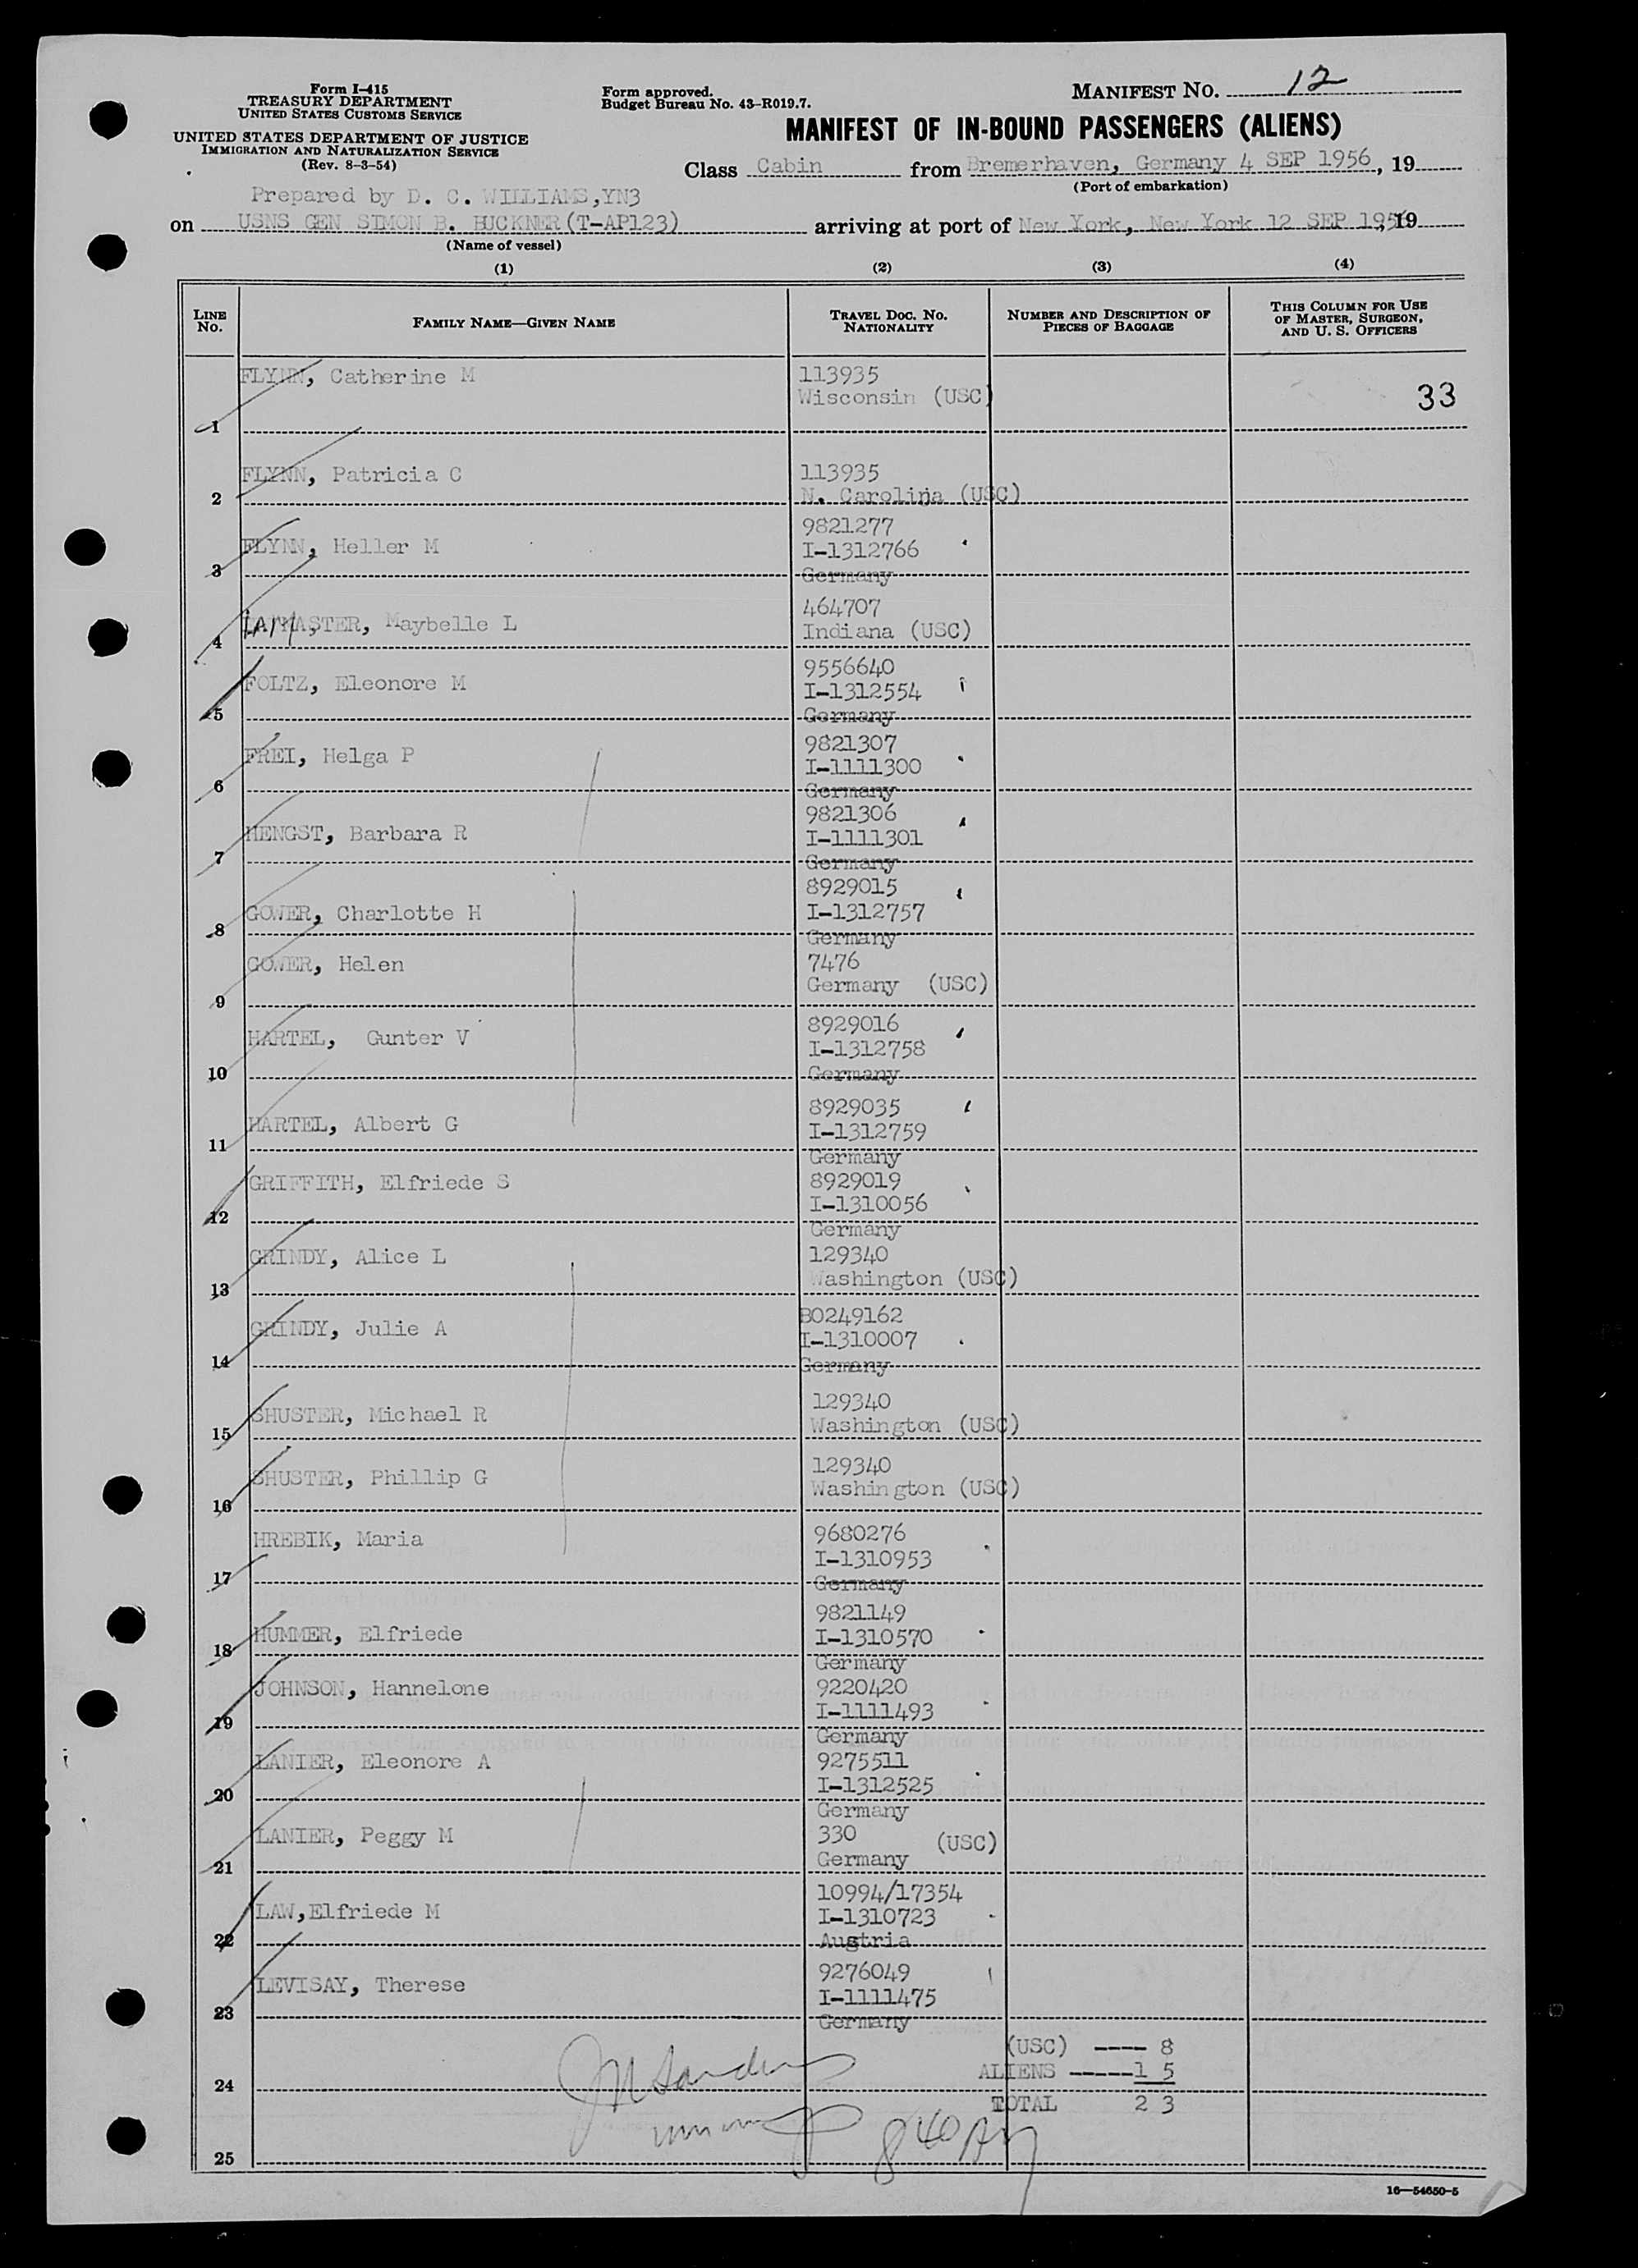 Form I-415
TREASURY DEPARTMENT
UNITED STATES CUSTOMS SERVICE
UNITED STATES DEPARTMENT OF JUSTICE
IMMIGRATION AND NATURALIZATION SERVICE
(Rev. 8-3-54)
Form approved.
Budget Bureau No. 43-R019.7.
MANIFEST NO. 12
MANIFEST OF IN-BOUND PASSENGERS (ALIENS)
Class Cabin from Bremerhaven, Germany 4 SEP 1956, 19
(Port of embarkation)
Prepared by D. C. WILLIAMS, YN3
on USNS GEN SIMON B. BUCKNER (T-AP123) arriving at port of New York, New York 12 SEP 1956, 19
(Name of vessel)
(1) (2) (3) (4)
LINE No. FAMILY NAME—GIVEN NAME TRAVEL DOC. NO. NATIONALITY NUMBER AND DESCRIPTION OF PIECES OF BAGGAGE THIS COLUMN FOR USE OF MASTER, SURGEON, AND U. S. OFFICERS
33
1 FLYNN, Catherine M 113935
Wisconsin (USC)
2 FLYNN, Patricia C 113935
N. Carolina (USC)
3 FLYNN, Heller M 9821277
I-1312766
Germany
4 Maybelle L 464707
Indiana (USC)
5 FOLTZ, Eleonore M 9556640
I-1312554
Germany
6 FREI, Helga P 9821307
I-1111300
Germany
7 HENGST, Barbara R 9821306
I-1111301
Germany
8 GOWER, Charlotte H 8929015
I-1312757
Germany
9 GOWER, Helen 7476
Germany (USC)
10 HARTEL, Gunter V 8929016
I-1312758
Germany
11 HARTEL, Albert G 8929035
I-1312759
Germany
12 GRIFFITH, Elfriede S 8929019
I-1310056
Germany
13 GRINDY, Alice L 129340
Washington (USC)
14 GRINDY, Julie A B0249162
I-1310007
Germany
15 SHUSTER, Michael R 129340
Washington (USC)
16 SHUSTER, Phillip G 129340
Washington (USC)
17 HREBIK, Maria 9680276
I-1310953
Germany
18 HUMMER, Elfriede 9821149
I-1310570
Germany
19 JOHNSON, Hannelone 9220420
I-1111493
Germany
20 LANIER, Eleonore A 9275511
I-1312525
Germany
21 LANIER, Peggy M 330 (USC)
Germany
22 LAW, Elfriede M 10994/17354
I-1310723
Austria
23 LEVISAY, Therese 9276049
I-1111475
Germany
(USC) ---- 8
24 ALIENS -----1 5
TOTAL 2 3
25
16—54650-5